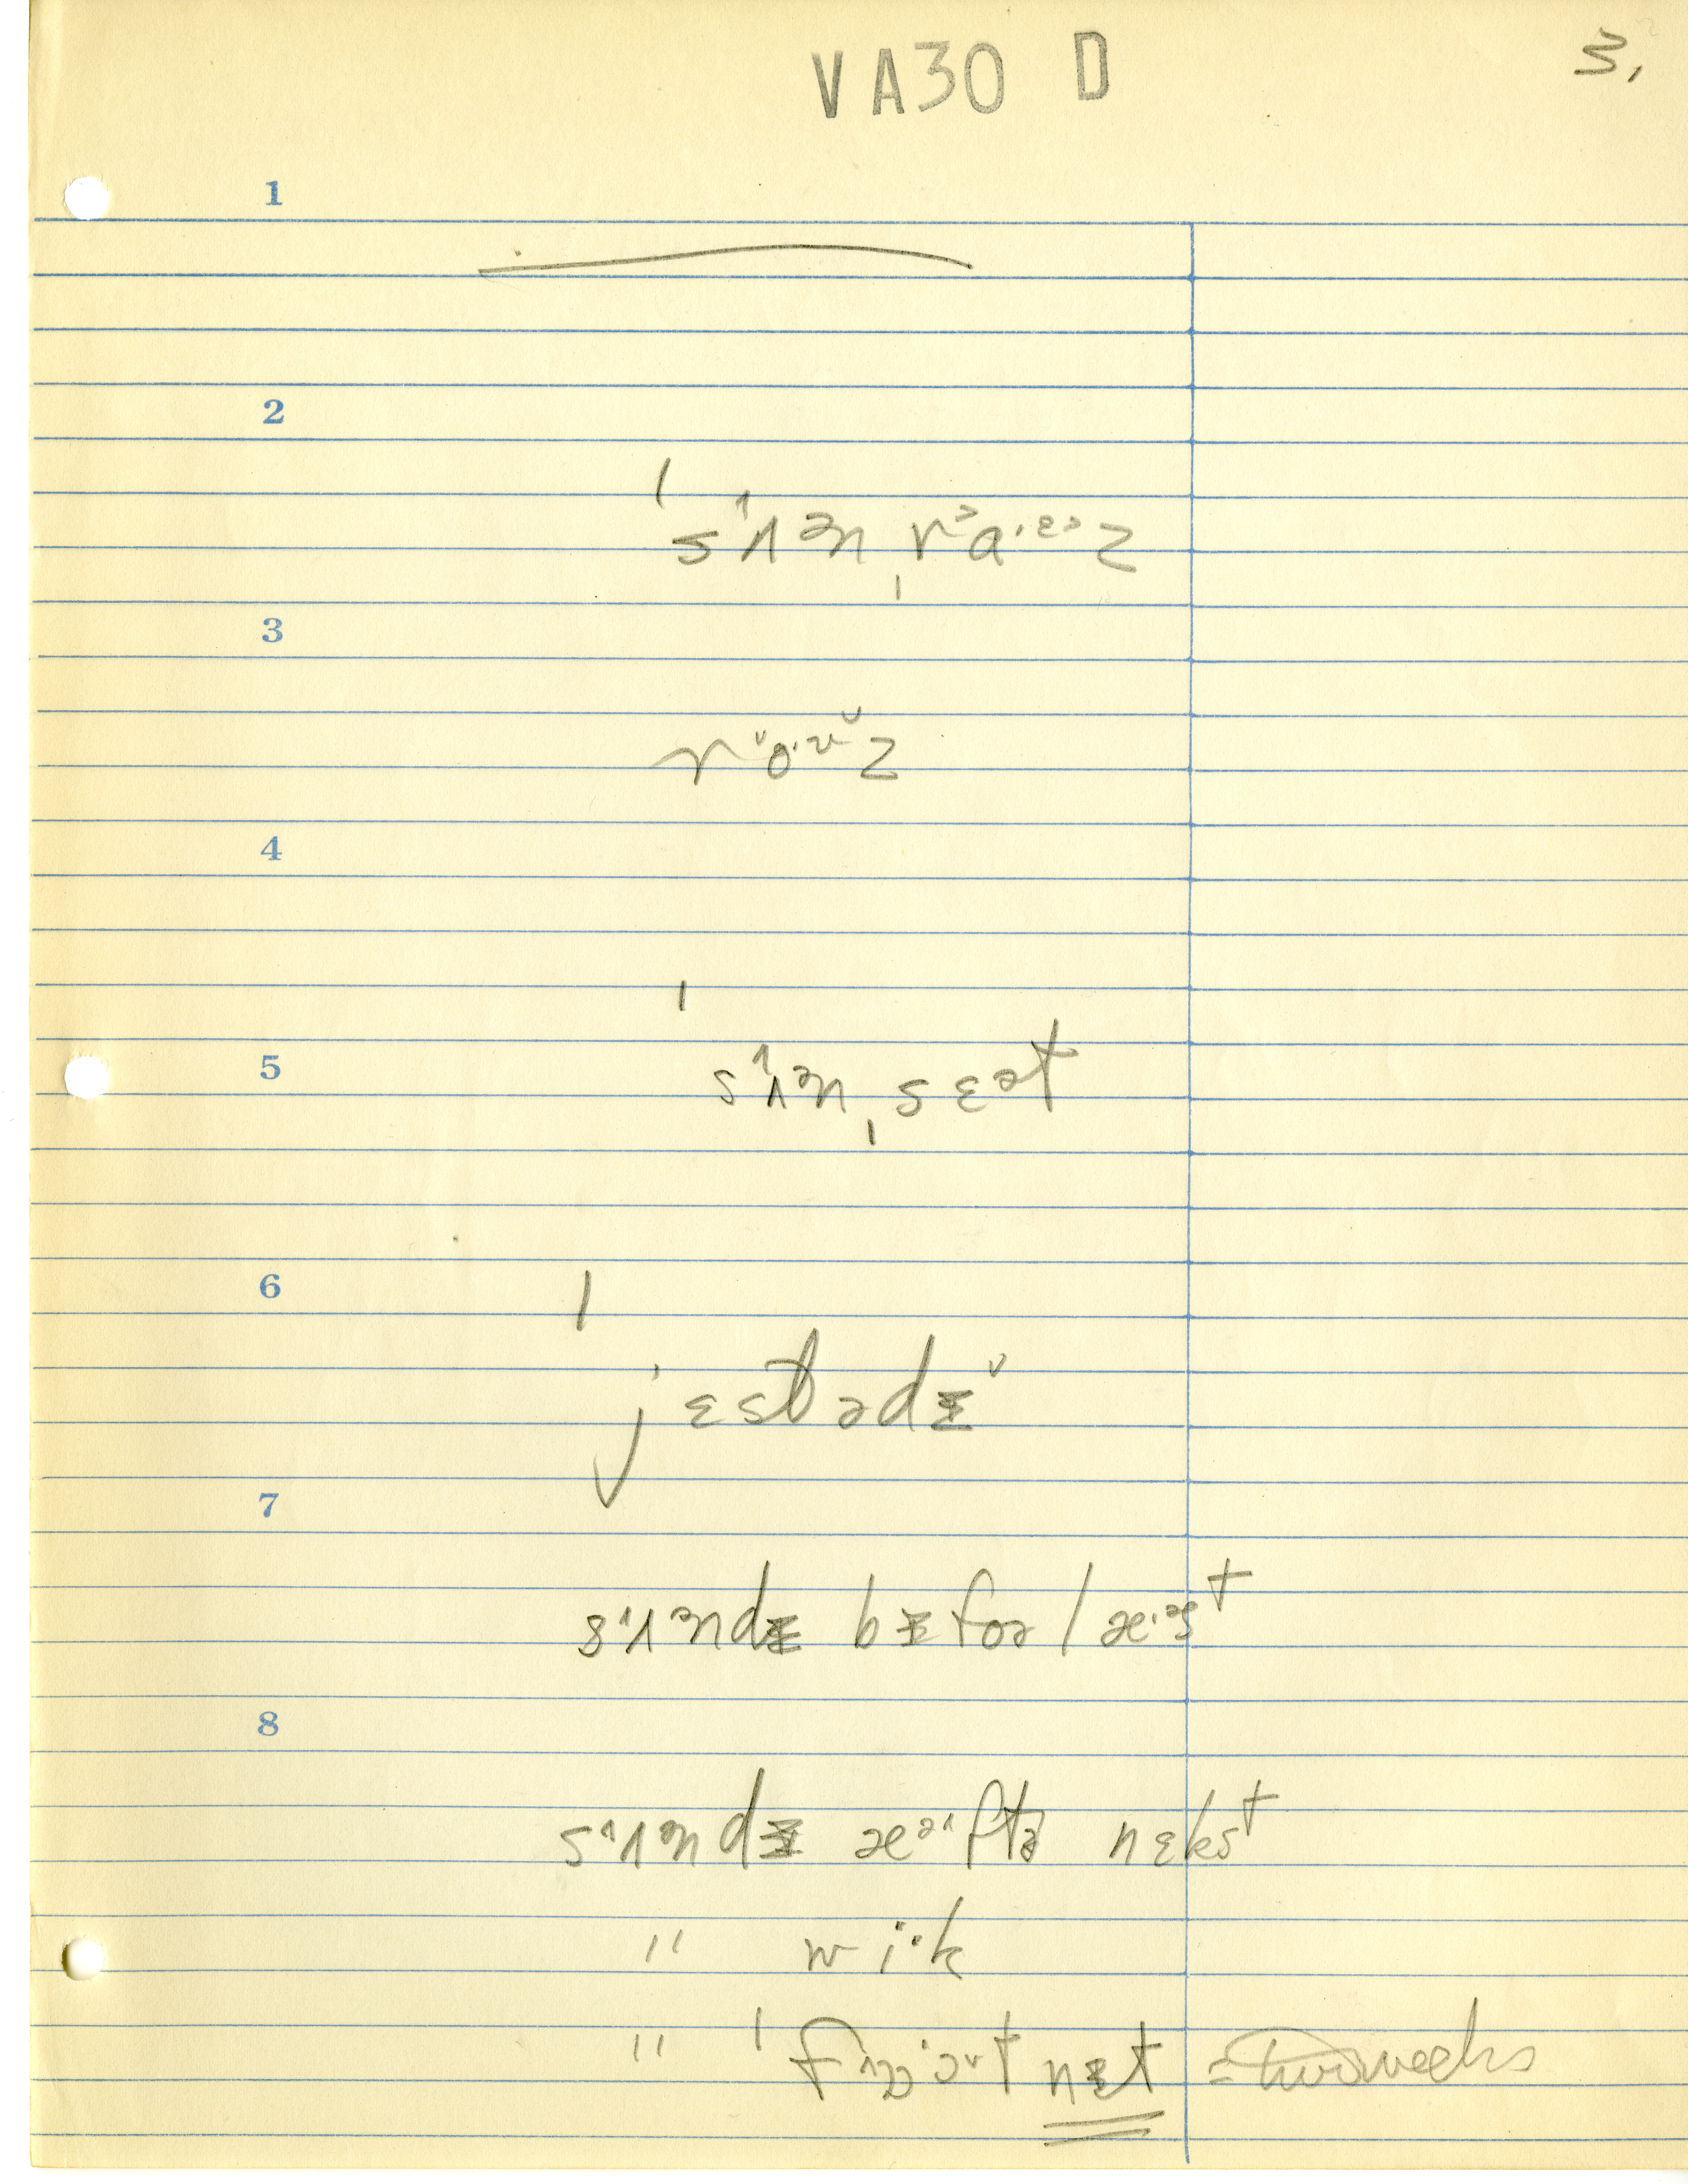 VA30 D
3.
1
2
ˈsʌ˄ənˌrᵊɑ·ᵋᵊz
3
ro·ᵘz
4
5
ˈsʌ˄ənˌsɛət
6
ˈjɛstədɪ˅
7
sʌ˄əndɪ bɪfoə læ·ᵊst
8
sʌ˄əndɪ æᵊ˄ftə nɛkst
" wi·k
" nɪt = two weeks